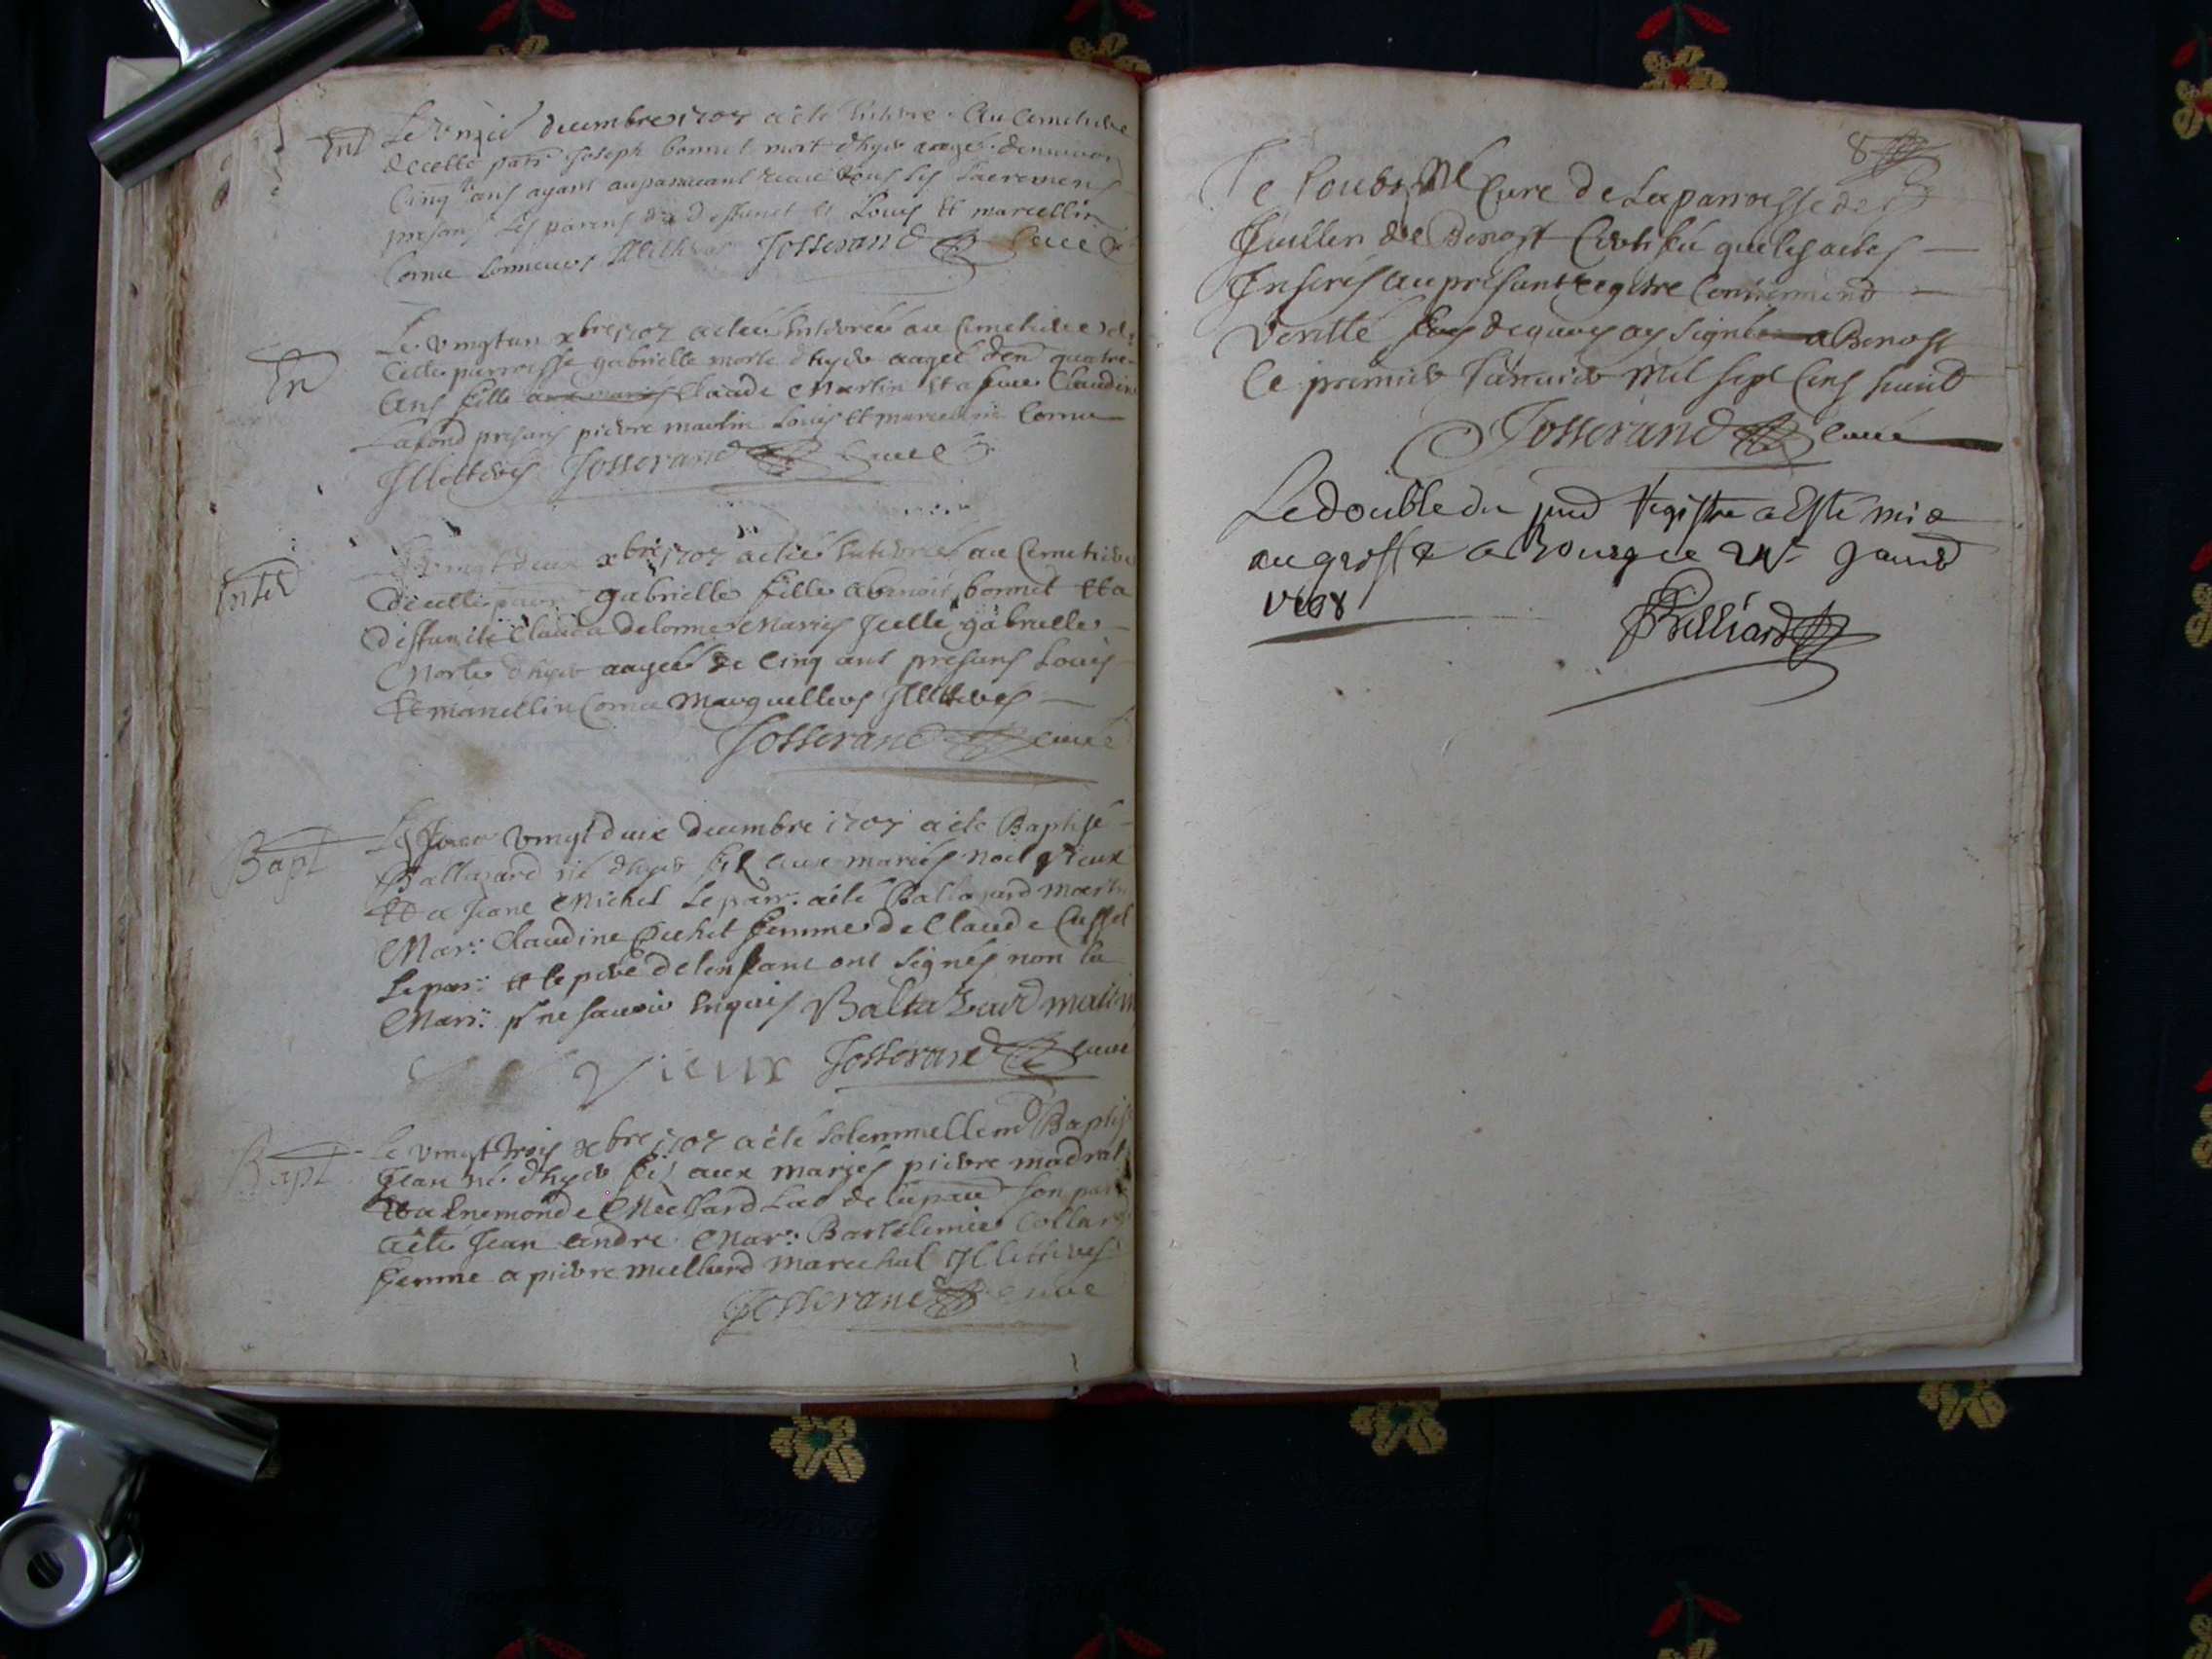 Ent
Le unzie decembre 1707 a ete enterre au cemetiere
de cette parr Joseph bonnet mort dhyer aagé denviron
Cinq ans ayant auparavant receu tous les sacremens
presens les parens du deffunct et Louis et marcellin
Cornu sonneurs illitheres Josserand Curé
En
Le vingtun xbre 1707 a etée enterrée au Cemetiere de
Cette parroisse gabrielle morte dhyer aagée den quatre
Ans fille aux mariés Claude Martin et a feue Claudine
Lafond presens pierre martin Louis et marcellin Cornu
Illetterés Josserand Curé
Enter
Le vingt deux xbre 1707 a etée enterrée au Cemetiere
de cette parr gabrielle fille a benoit bonnet et a
deffuncte Clauda delorme Mariés icelle gabrielle
Morte dhyer aagée de Cinq ans presens Louis
et marcellin Cornu Marguelliers Illiteres
Josserand curé
Bapt
Le Jour vingt deux decembre 1707 a ete Baptisé
Baltazard né dhyer fil aux mariés noel Vieux
et a Jeane Michel Le parr. a eté Baltazard Martin
Marr. Claudine Cochet femme de Claude Cusset
Le parr. et le pere de lenfant ont signés non la
Marr. pr ne savoir enquis Balta Zard martin
Vieux Josserand curé
Bapt
Le vingt trois xbre 1707 a ete solemnellemt Baptisé
Jean né dhyer fil aux mariés pierre madrat
et a Enemonde Meillard Lad de la parr son parr
a eté Jean andré Marr. Bartelemie Collard
femme a pierre meilliard Marechal Illitteres
Josserand curé
8
Je soubsigné Curé de La parroisse de St
Jullien de Benost Certifie que les actes
Inserés au present registre Contiennent
Verité En foy dequoy ay signé a Benost
le premier Janvier Mil sept Cens huict
Josserand curé
Le double du pnt Registre a Esté mis
au greffe a Bourg le 24e Janvr
1708
Brilliard